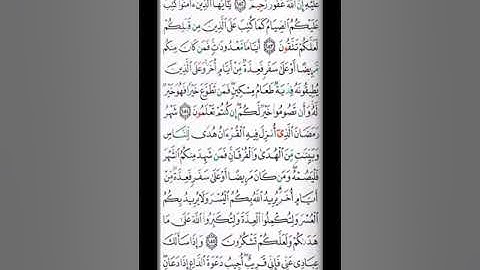 عَلَيْهِ إِنَّ ٱللَّهَ غَفُورٌ رَّحِيمٌ ۝١٨٢ يَٰٓأَيُّهَا ٱلَّذِينَ ءَامَنُوا۟ كُتِبَ
عَلَيْكُمُ ٱلصِّيَامُ كَمَا كُتِبَ عَلَى ٱلَّذِينَ مِن قَبْلِكُمْ
لَعَلَّكُمْ تَتَّقُونَ ۝١٨٣ أَيَّامًا مَّعْدُودَٰتٍ فَمَن كَانَ مِنكُم
مَّرِيضًا أَوْ عَلَىٰ سَفَرٍ فَعِدَّةٌ مِّنْ أَيَّامٍ أُخَرَ وَعَلَى ٱلَّذِينَ
يُطِيقُونَهُۥ فِدْيَةٌ طَعَامُ مِسْكِينٍ فَمَن تَطَوَّعَ خَيْرًا فَهُوَ خَيْرٌ
لَّهُۥ وَأَن تَصُومُوا۟ خَيْرٌ لَّكُمْ إِن كُنتُمْ تَعْلَمُونَ ۝١٨٤ شَهْرُ
رَمَضَانَ ٱلَّذِىٓ أُنزِلَ فِيهِ ٱلْقُرْءَانُ هُدًى لِّلنَّاسِ
وَبَيِّنَٰتٍ مِّنَ ٱلْهُدَىٰ وَٱلْفُرْقَانِ فَمَن شَهِدَ مِنكُمُ ٱلشَّهْرَ
فَلْيَصُمْهُ وَمَن كَانَ مَرِيضًا أَوْ عَلَىٰ سَفَرٍ فَعِدَّةٌ مِّنْ
أَيَّامٍ أُخَرَ يُرِيدُ ٱللَّهُ بِكُمُ ٱلْيُسْرَ وَلَا يُرِيدُ بِكُمُ
ٱلْعُسْرَ وَلِتُكْمِلُوا۟ ٱلْعِدَّةَ وَلِتُكَبِّرُوا۟ ٱللَّهَ عَلَىٰ مَا
هَدَىٰكُمْ وَلَعَلَّكُمْ تَشْكُرُونَ ۝١٨٥ وَإِذَا سَأَلَكَ
عِبَادِى عَنِّى فَإِنِّى قَرِيبٌ أُجِيبُ دَعْوَةَ ٱلدَّاعِ إِذَا دَعَانِ